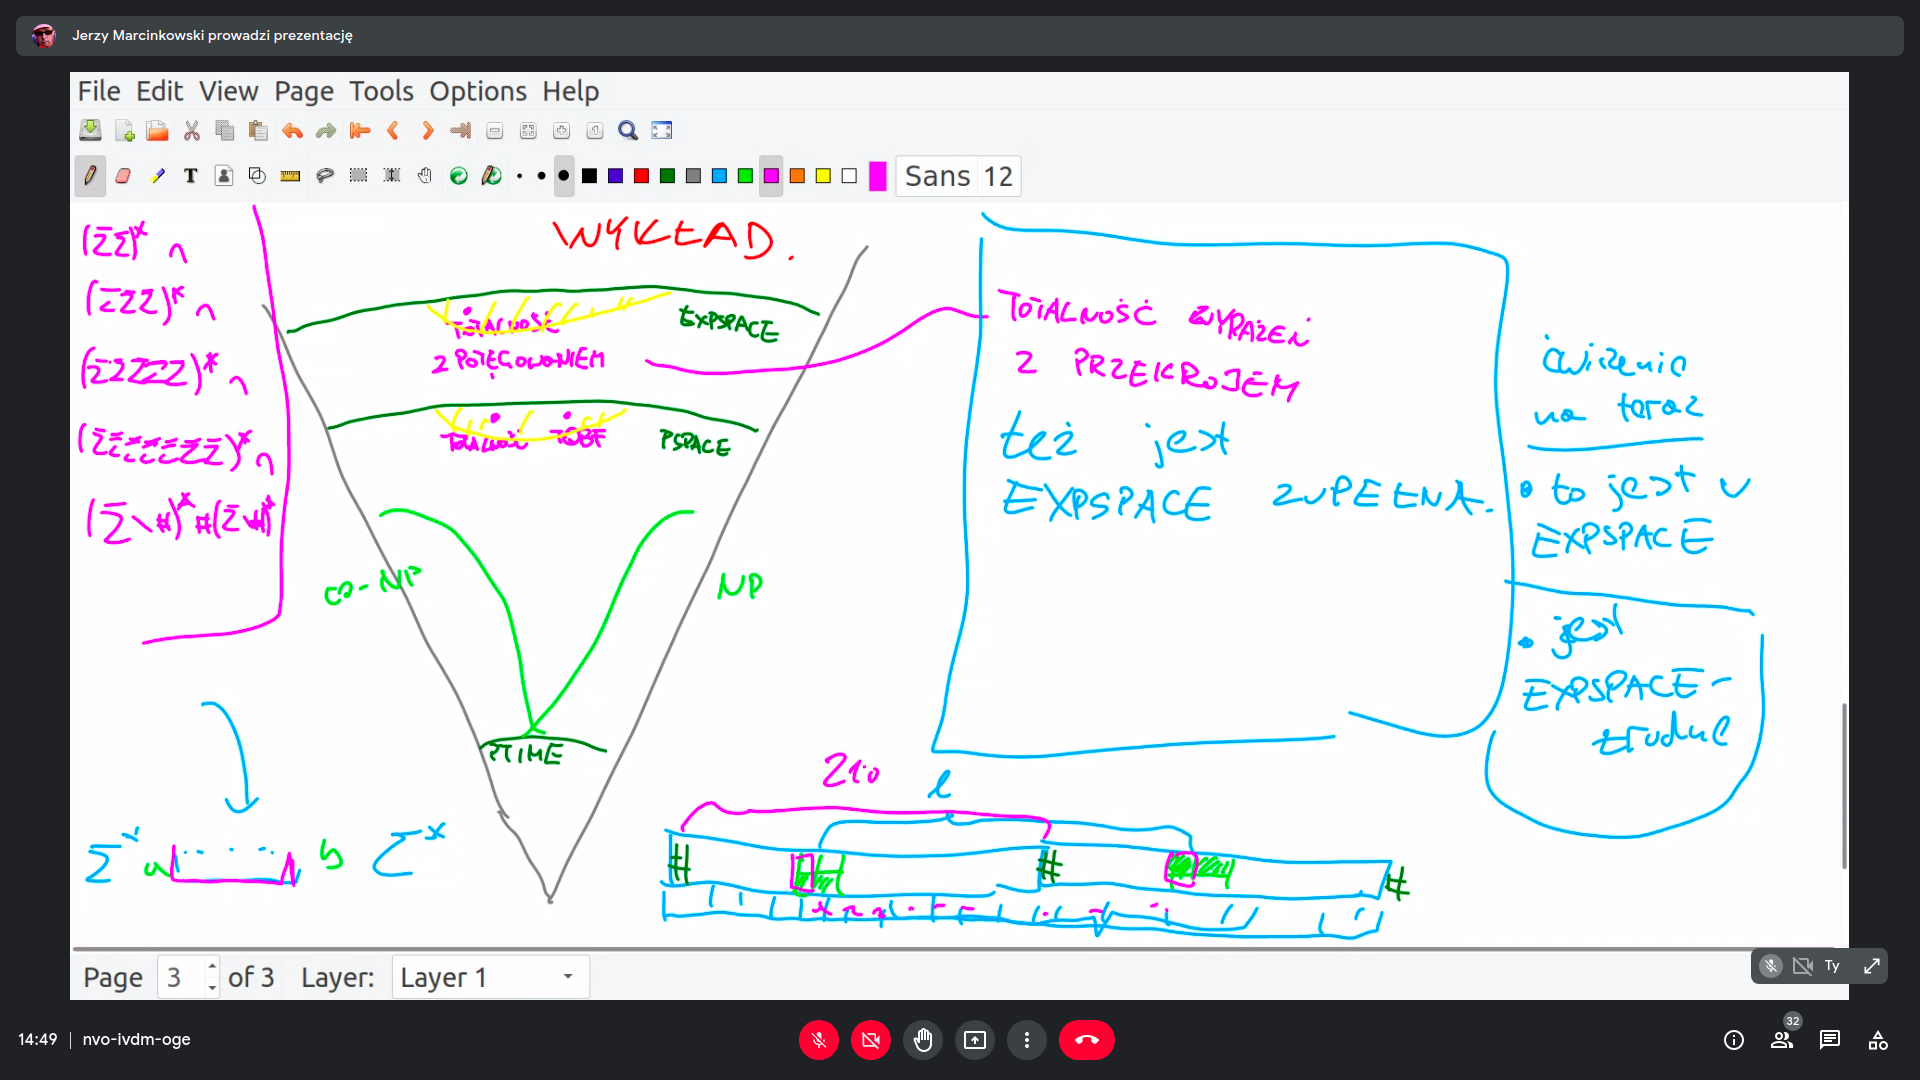 Jerzy Marcinkowski prowadzi prezentację
File Edit View Page Tools Options Help
Sans 12
WYKŁAD.
(ΣΣ)* ∩
(ΣΣΣ)* ∩
(ΣΣΣΣΣ)* ∩
(ΣΣΣΣΣΣΣ)* ∩
(Σ\#)*#(Σ\#)*
TOTALNOŚĆ
Z POTĘGOWANIEM
EXPSPACE
TOTALNOŚĆ TQBF
PSPACE
co-NP
NP
PTIME
TOTALNOŚĆ WYRAŻEŃ
Z PRZEKROJEM
też jest
EXPSPACE ZUPEŁNA.
ćwiczenie
na teraz
• to jest w
EXPSPACE
• jest
EXPSPACE-
trudne
Σ* a b Σ*
210
l
# # #
Page 3 of 3 Layer: Layer 1
Ty
14:49 | nvo-ivdm-oge
32